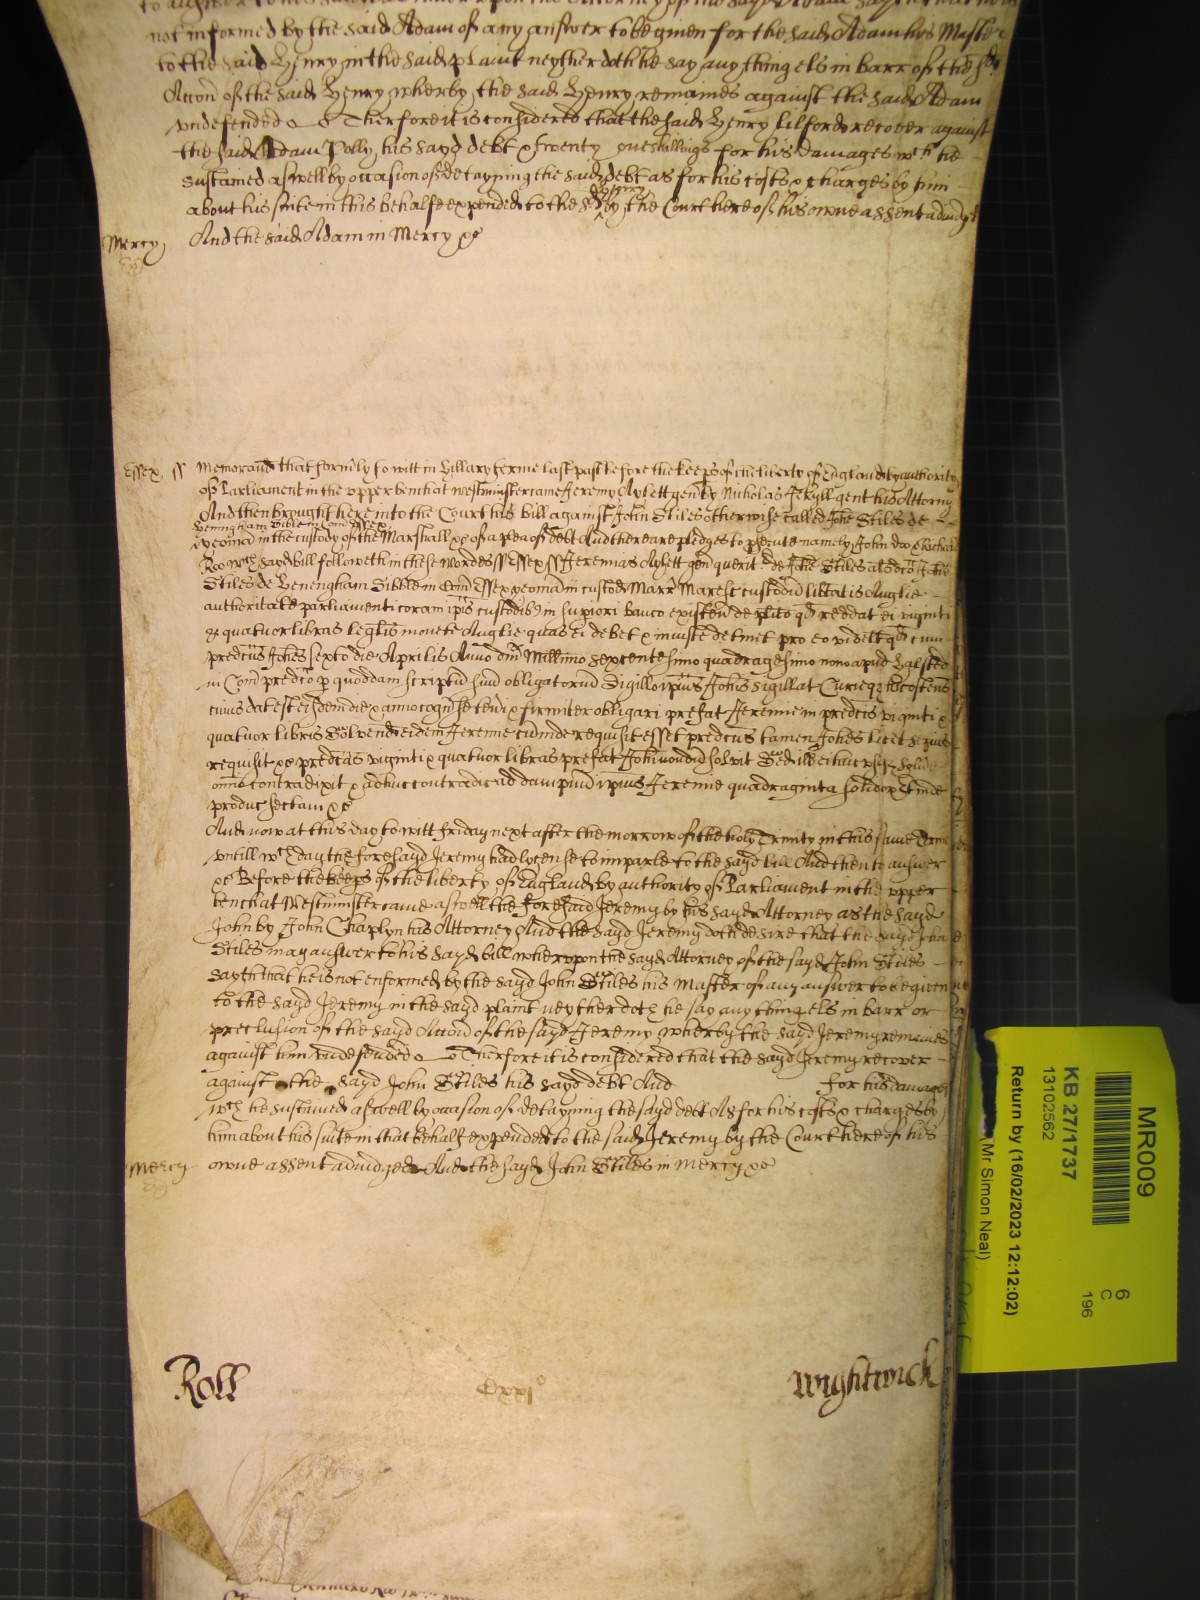 not informed by the said Adam of any answer to be given for the said Adam his Master
to the said Henry in the said plaint neyther doth he say any thing els in barr of the
Accon of the said Henry wherby the said Henry remaines against the said Adam
vndefended Therfore it is considered that the said Henry Lilford recover against
the said Adam Polly his sayd debt & twenty one shillings for his damages wch he
sustained aswell by occasion of detayning the said debt as for his costs & charges by him
about his suite in this behalfe expended to the sd Henry by the Court here of his owne assent adiudged
Mercy And the said Adam in Mercy &c
Essex ss Memorand that formrly to witt in Hillary terme last past before the keeps of the liberty of England by authority
of Parliament in the vpper bench at westminster came Jeremy Aylett gen by Nicholas Jekyll gent his Attorny
And then brought here into the Court his bill against John Stiles otherwise called John Stiles de
Heningham Sible in Com Essex
yeoman in the custody of the Marshall &c of a plea of debt And there are pledges to psecute namely John doo & Richard
Roo wch sayd bill followeth in these wordes ss Essex ss Jeremias Aylett gen querit de Johe Stiles als dco Johe
Stiles de Heningham Sibble in Com Essex yeoman in custod Marr Maresc custod libtatis Anglie
authoritate parliamenti coram ipis custodib in supiori banco existen de plito qd reddat ei viginti
& quatuor libras legalis monete Anglie quas ei debet & iniuste detinet pro eo videlt qd cum
predcus Johes sexto die Aprilis Anno dni Millimo sexcentesimo quadragesimo nono apud Halsted
in Com predco p quoddam scriptu suu obligatoriu Sigillo ipius Johis sigillat Curieq hic ostens
cuius dat est eisdem die & anno cogn se teneri & firmiter obligari prefat Jeremie in predcis viginti &
quatuor libris Solvend eidem Jeremie cum inde requisit esset predcus tamen Johes licet sepius
requisit &c predcas viginti & quatuor libras prefat Johi nondu solvit Sed ill ei huc usq solve
omio contradixit & adhuc contradic ad dampnu ipius Jeremie quadraginta solidor Et inde
produc sectam &c
And now at this day to witt friday next after the morrow of the holy Trinity in this same Terme
vntill wch day the foresayd Jeremy had lycense to imparle to the sayd bill And then to answer
&c Before the keeps of the liberty of England by authority of Parliament in the vpper
bench at Westminster came aswell the foresaid Jeremy by his sayd Attorney as the sayd
John by John Chaplyn his Attorney And the sayd Jeremy doth desire that the sayd John
Stiles may answer to his sayd bill wherevpon the sayd Attorney of the sayd John Stiles
sayth that he is not enformed by the sayd John Stiles his Master of any answer to be given
to the sayd Jeremy in the sayd plaint neyther doth he say any thing els in barr or
preclusion of the sayd Accon of the sayd Jeremy wherby the sayd Jeremy remaines
against him vndefended Therfore it is considered that the sayd Jeremy recover
against the sayd John Stiles his sayd debt And for his damages
wch he sustained aswell by occasion of detayning the sayd debt As for his costs & charges by
him about his suite in that behalf expended to the said Jeremy by the Court here of his
Mercy owne assent adiudged And the sayd John Stiles in Mercy &c
Roll Cxxio Wightwick
MR009
6
C
196
KB 27/1737
13102562
Return by (16/02/2023 12:12:02)
(Mr Simon Neal)